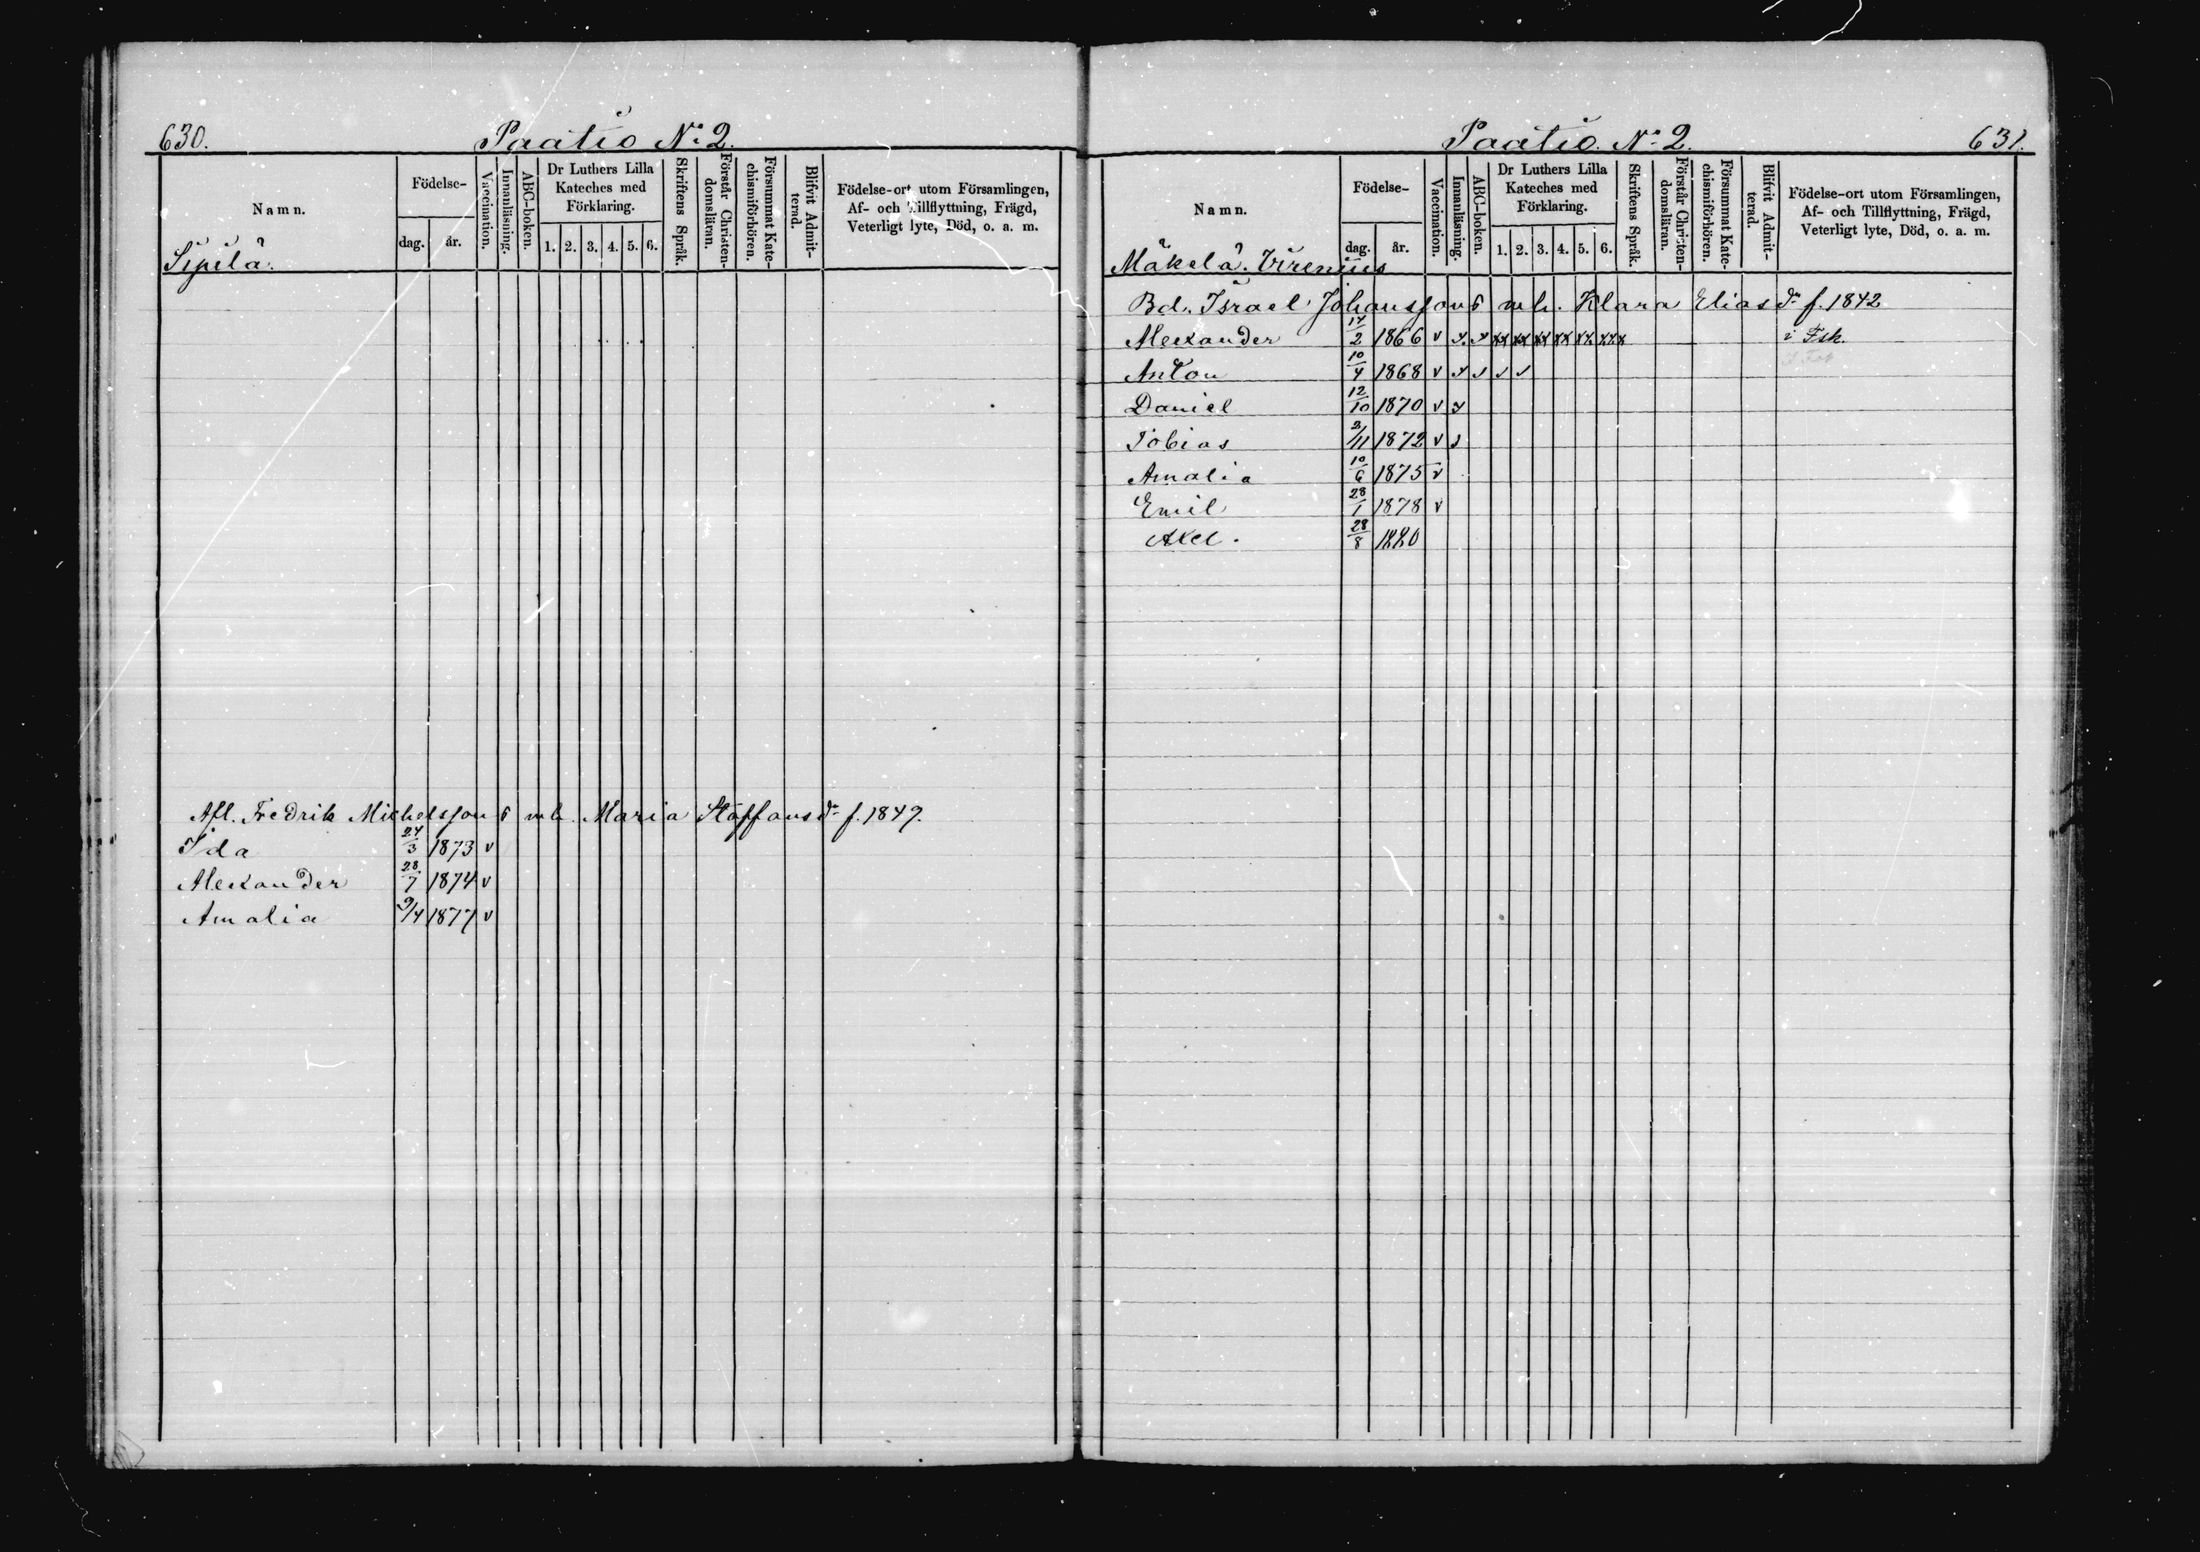 630.
Paatio No 2.
Namn.
Födelse-
dag. år.
Vaccination.
Innanläsning.
ABC-boken.
Dr Luthers Lilla Kateches med Förklaring.
1. 2. 3. 4. 5. 6.
Skriftens Språk.
Förstår Christendomsläran.
Försummat Katechismiförhören.
Blifvit Admitterad.
Födelse-ort utom Församlingen, Af- och Tillflyttning, Frägd, Veterligt lyte, Död, o. a. m.
Sipilä.
Afl. Fredrik Michelssons mh. Maria Staffansdr f. 1849.
Ida 24/3 1873 v
Alexander 28/7 1874 v
Amalia 9/4 1877 v
Paatio. No 2.
631.
Namn.
Födelse-
dag. år.
Vaccination.
Innanläsning.
ABC-boken.
Dr Luthers Lilla Kateches med Förklaring.
1. 2. 3. 4. 5. 6.
Skriftens Språk.
Förstår Christendomsläran.
Försummat Katechismiförhören.
Blifvit Admitterad.
Födelse-ort utom Församlingen, Af- och Tillflyttning, Frägd, Veterligt lyte, Död, o. a. m.
Mäkelä.
Bd. Israel Johanssons mh. Klara Eliasdr f. 1842
Alexander 14/2 1866 v i Fsk.
Anton 10/4 1868 v
Daniel 12/10 1870 v
Tobias 2/11 1872 v
Amalia 10/6 1875 v
Emil 28/1 1878 v
Axel. 28/8 1880